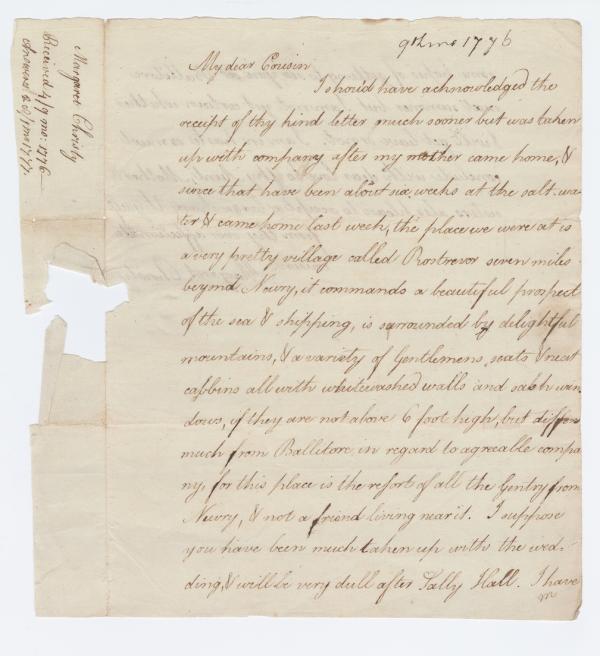 Margaret Christy
Received 4/9 mo 1776
Answered 2d/1mo 1777.
9th mo 1776
My dear Cousin
I should have acknowledged the
receipt of thy kind letter much sooner but was taken
up with company after my mother came home, &
since that have been about six weeks at the salt-wa-
ter & came home last week, the place we were at is
a very pretty village called Rostrevor seven miles
beyond Newry, it commands a beautiful prospect
of the sea & shipping, is sarrounded by delightful
mountains, & a variety of Gentlemens seats & neat
cabbins all with whitewashed walls and sash win
dows, if they are not above 6 foot high, but differs
much from Ballitore in regard to agreable compa
ny, for this place is the resort of all the Gentry from
Newry, & not a friend living near it. I suppose
you have been much taken up with the wed-
ding, & will be very dull after Sally Hall. I have